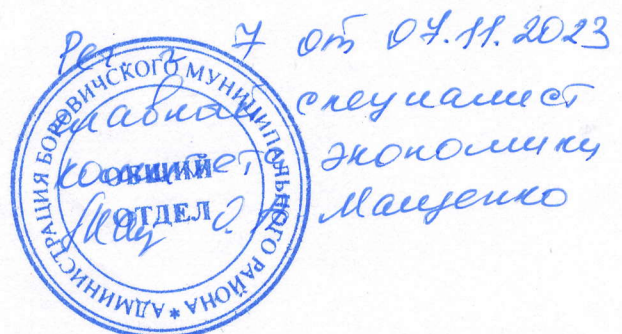 Рег. № 7 от 07.11.2023
главный специалист
комитета экономики
О. Мащенко
АДМИНИСТРАЦИЯ БОРОВИЧСКОГО МУНИЦИПАЛЬНОГО РАЙОНА *
ОБЩИЙ
ОТДЕЛ